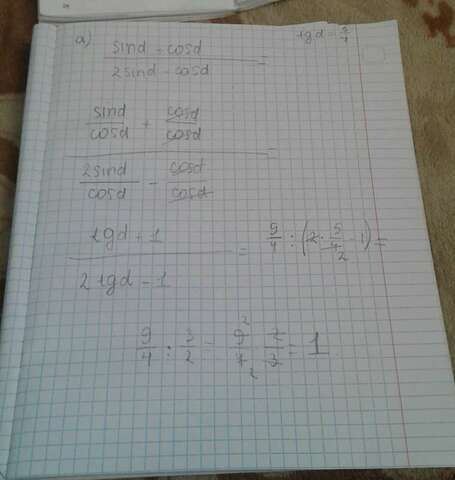 a) sind - cosd / 2sind - cosd =
tgd = 5/4
sind/cosd + cosd/cosd / 2sind/cosd - cosd/cosd =
tgd + 1 / 2tgd - 1 = 9/4 : (2 · 5/4 2 - 1) =
9/4 : 3/2 = = 1